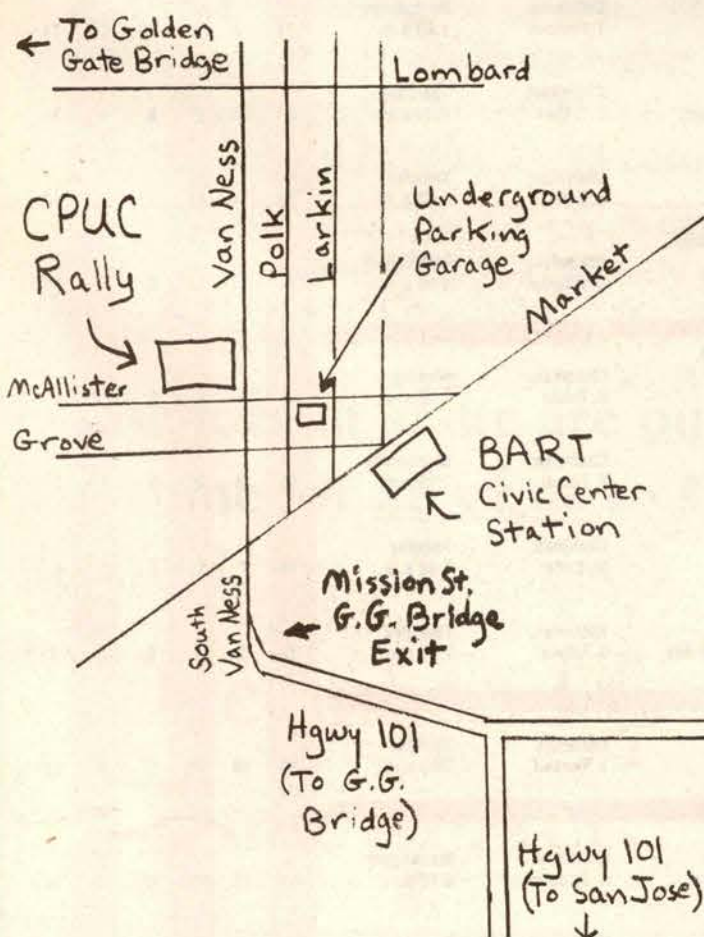 ← To Golden
Gate Bridge
Lombard
Van Ness
Polk
Larkin
Underground
Parking
Garage
CPUC
Rally
Market
McAllister
Grove
BART
Civic Center
Station
South
Van Ness
Mission St.
G.G. Bridge
Exit
Hgwy 101
(To G.G.
Bridge)
Hgwy 101
(To San Jose)